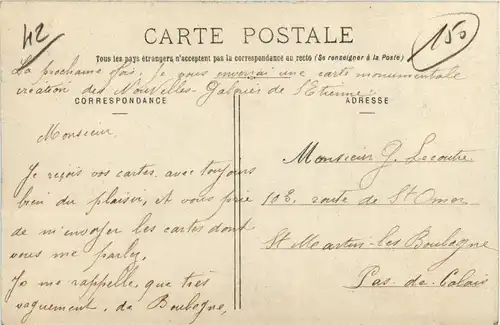 42
CARTE POSTALE
150
Tous les pays étrangers n'acceptent pas la correspondance au recto (Se renseigner à la Poste)
La prochaine fois, je vous envoyai une carte monumentale
création des Nouvelles-Galeries de St Etienne.
CORRESPONDANCE
Monsieur,
Je reçois vos cartes avec toujours
bien du plaisir, et vous prie
de m'envoyer les cartes dont
vous me parlez,
Je me rappelle, que très
vaguement, de Boulogne,
ADRESSE
Monsieur G. Lecoutre
10 E. route de St Omer
St Martin-les Boulogne
Pas-de-Calais